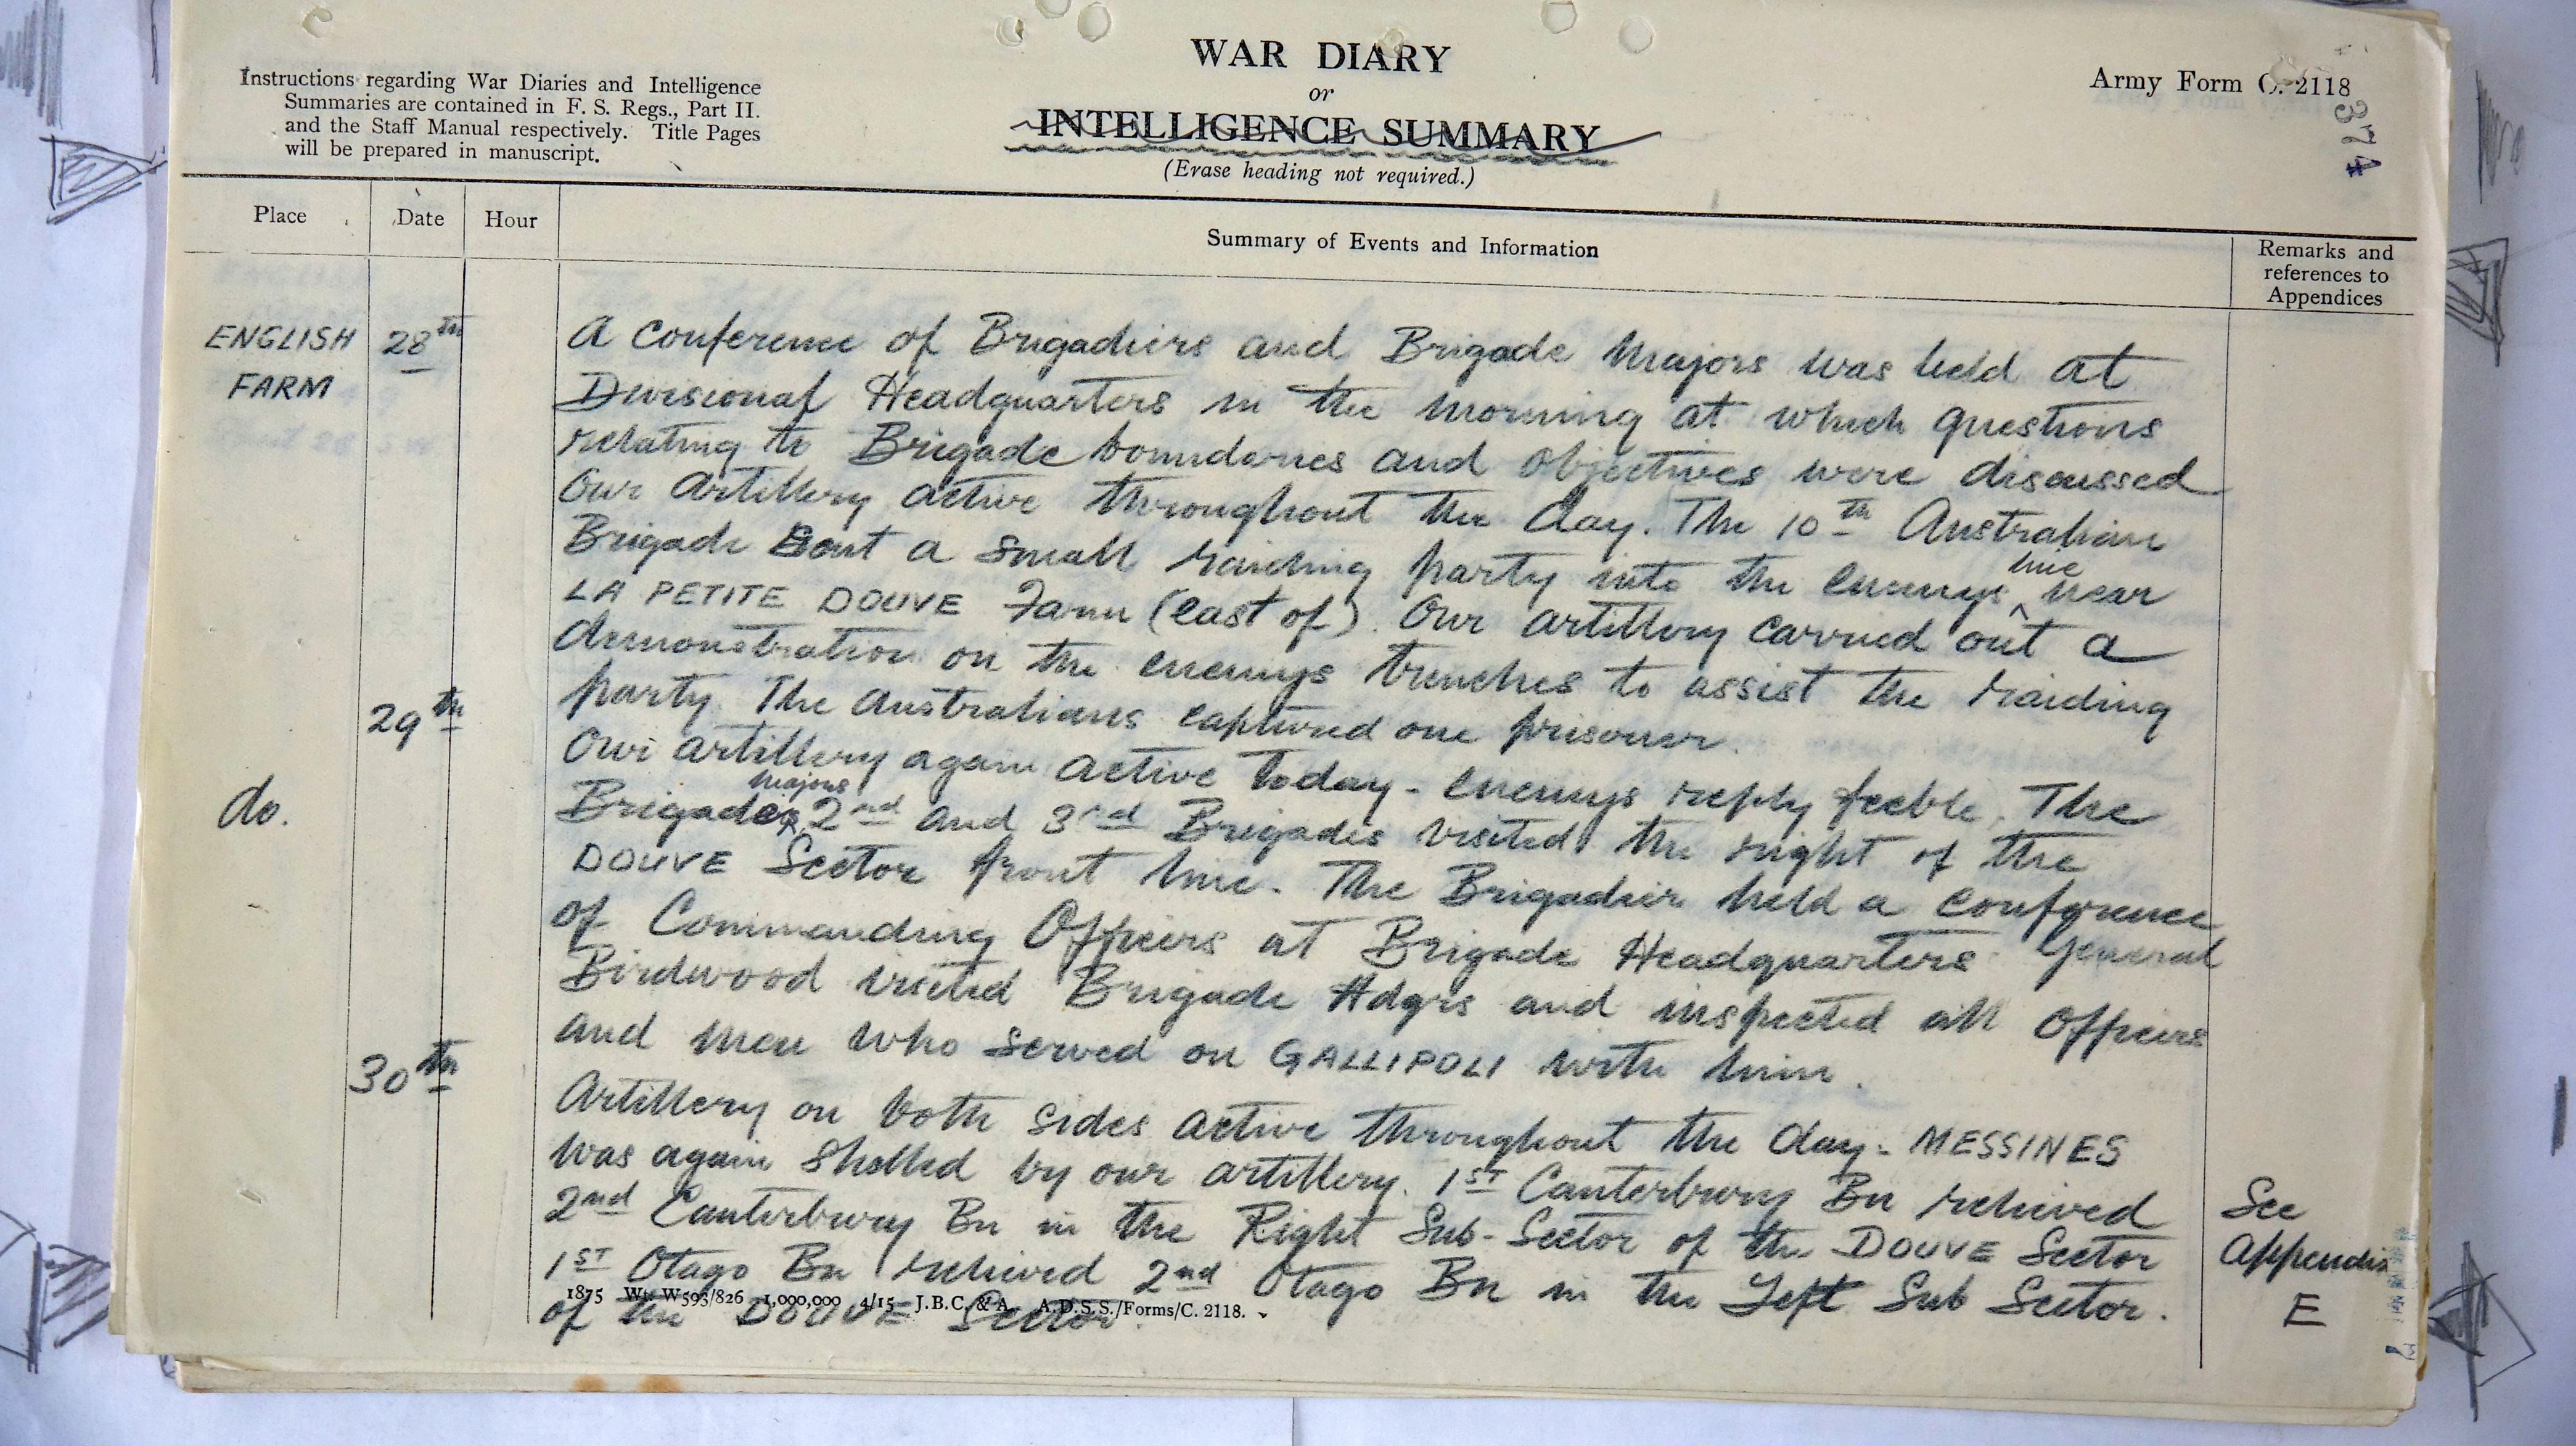 Instructions regarding War Diaries and Intelligence
Summaries are contained in F. S. Regs., Part II.
and the Staff Manual respectively. Title Pages
will be prepared in manuscript.
WAR DIARY
or
INTELLIGENCE SUMMARY
(Erase heading not required.)
Army Form C. 2118
374
Place
Date
Hour
Summary of Events and Information
Remarks and
references to
Appendices
ENGLISH
FARM
28th
A conference of Brigadiers and Brigade Majors was held at
Divisional Headquarters in the morning at which questions
relating to Brigade boundaries and objectives were discussed
Our artillery active throughout the day. The 10th Australian
Brigade sent a small raiding party into the enemys line near
LA PETITE DOUVE Farm (East of). Our artillery carried out a
demonstration on the enemys trenches to assist the raiding
party. The Australians captured one prisoner.
do.
29th
Our artillery again active today - enemys reply feeble. The
Brigade Majors 2nd and 3rd Brigades visited the right of the
DOUVE Sector front line. The Brigadier held a conference
of Commanding Officers at Brigade Headquarters General
Birdwood visited Brigade Hdqrs and inspected all officers
and men who served on GALLIPOLI with him.
30th
Artillery on both sides active throughout the day - MESSINES
was again shelled by our artillery. 1ST Canterbury Bn relieved
2nd Canterbury Bn in the Right Sub-Sector of the DOUVE Sector
1ST Otago Bn relieved 2nd Otago Bn in the Left Sub Sector.
of the DOUVE Sector.
See
Appendix
E
1875 Wt. W593/826 1,000,000 4/15 J.B.C. & A. A.D.S.S./Forms/C. 2118.